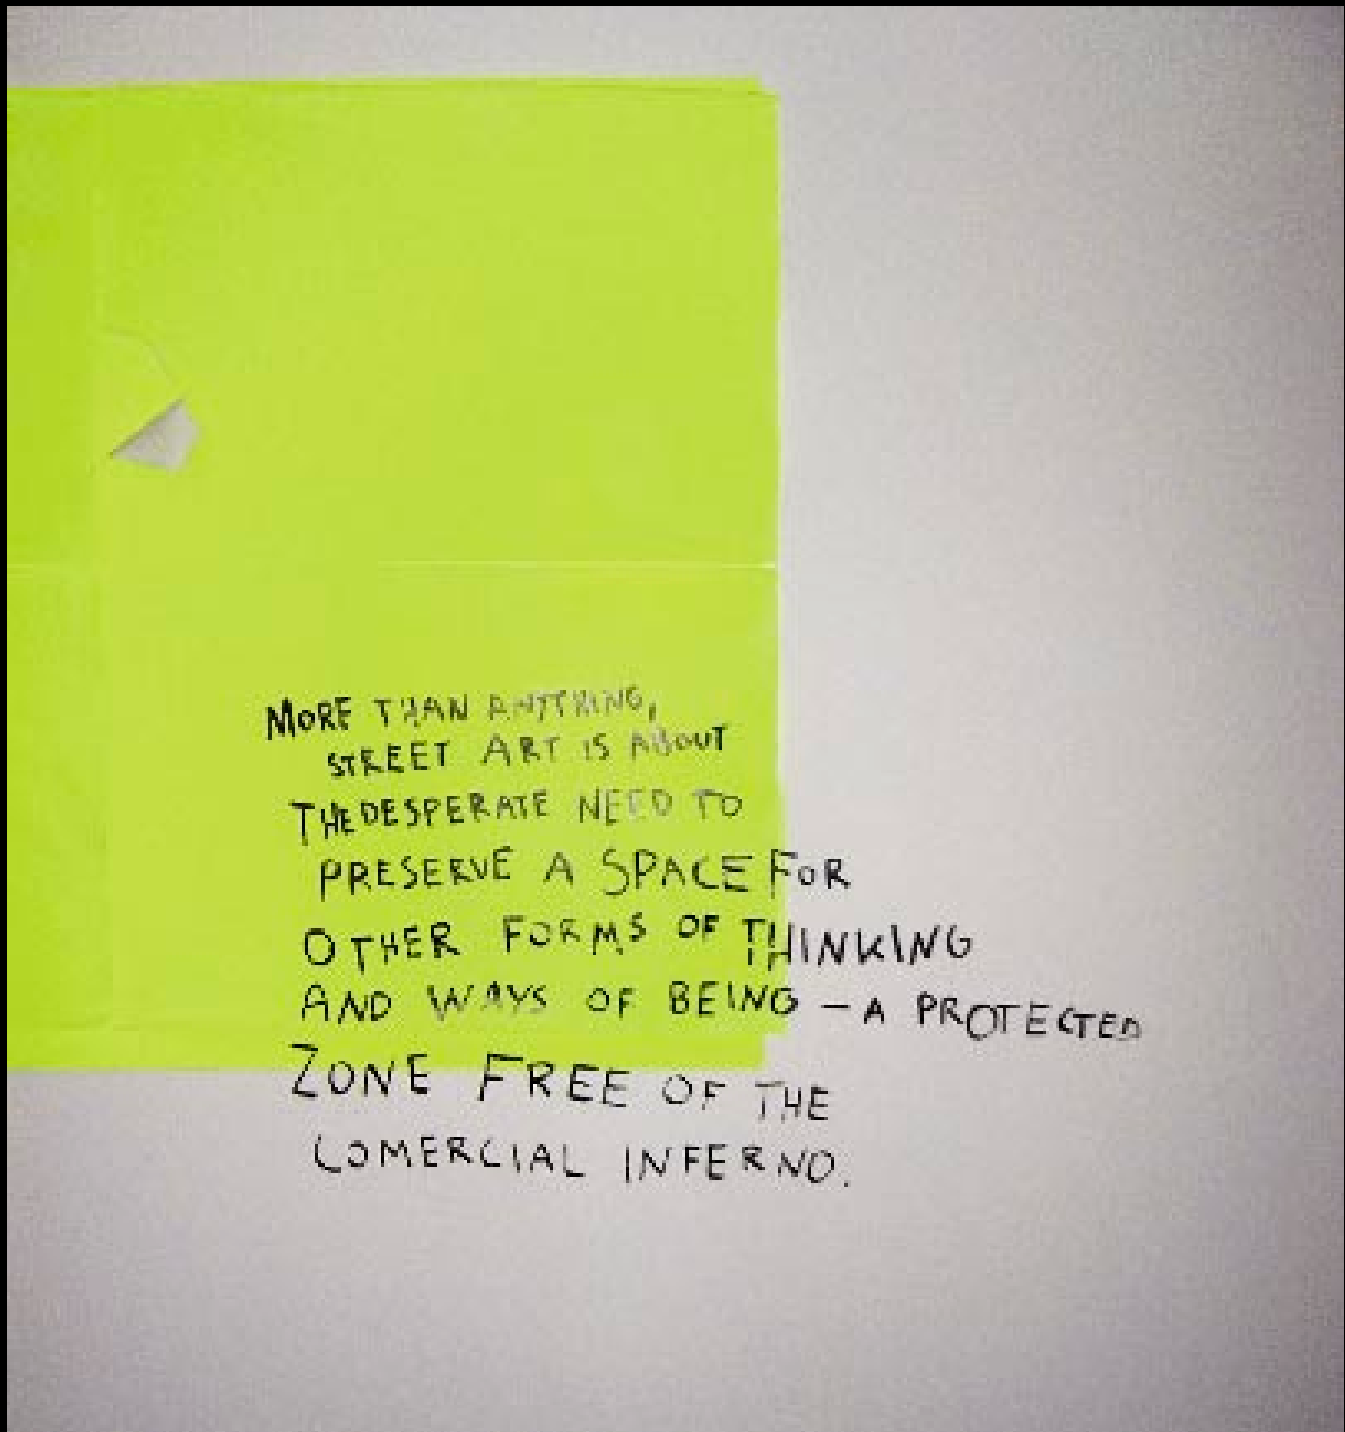 MORE THAN ANYTHING,
STREET ART IS ABOUT
THE DESPERATE NEED TO
PRESERVE A SPACE FOR
OTHER FORMS OF THINKING
AND WAYS OF BEING – A PROTECTED
ZONE FREE OF THE
COMERCIAL INFERNO.